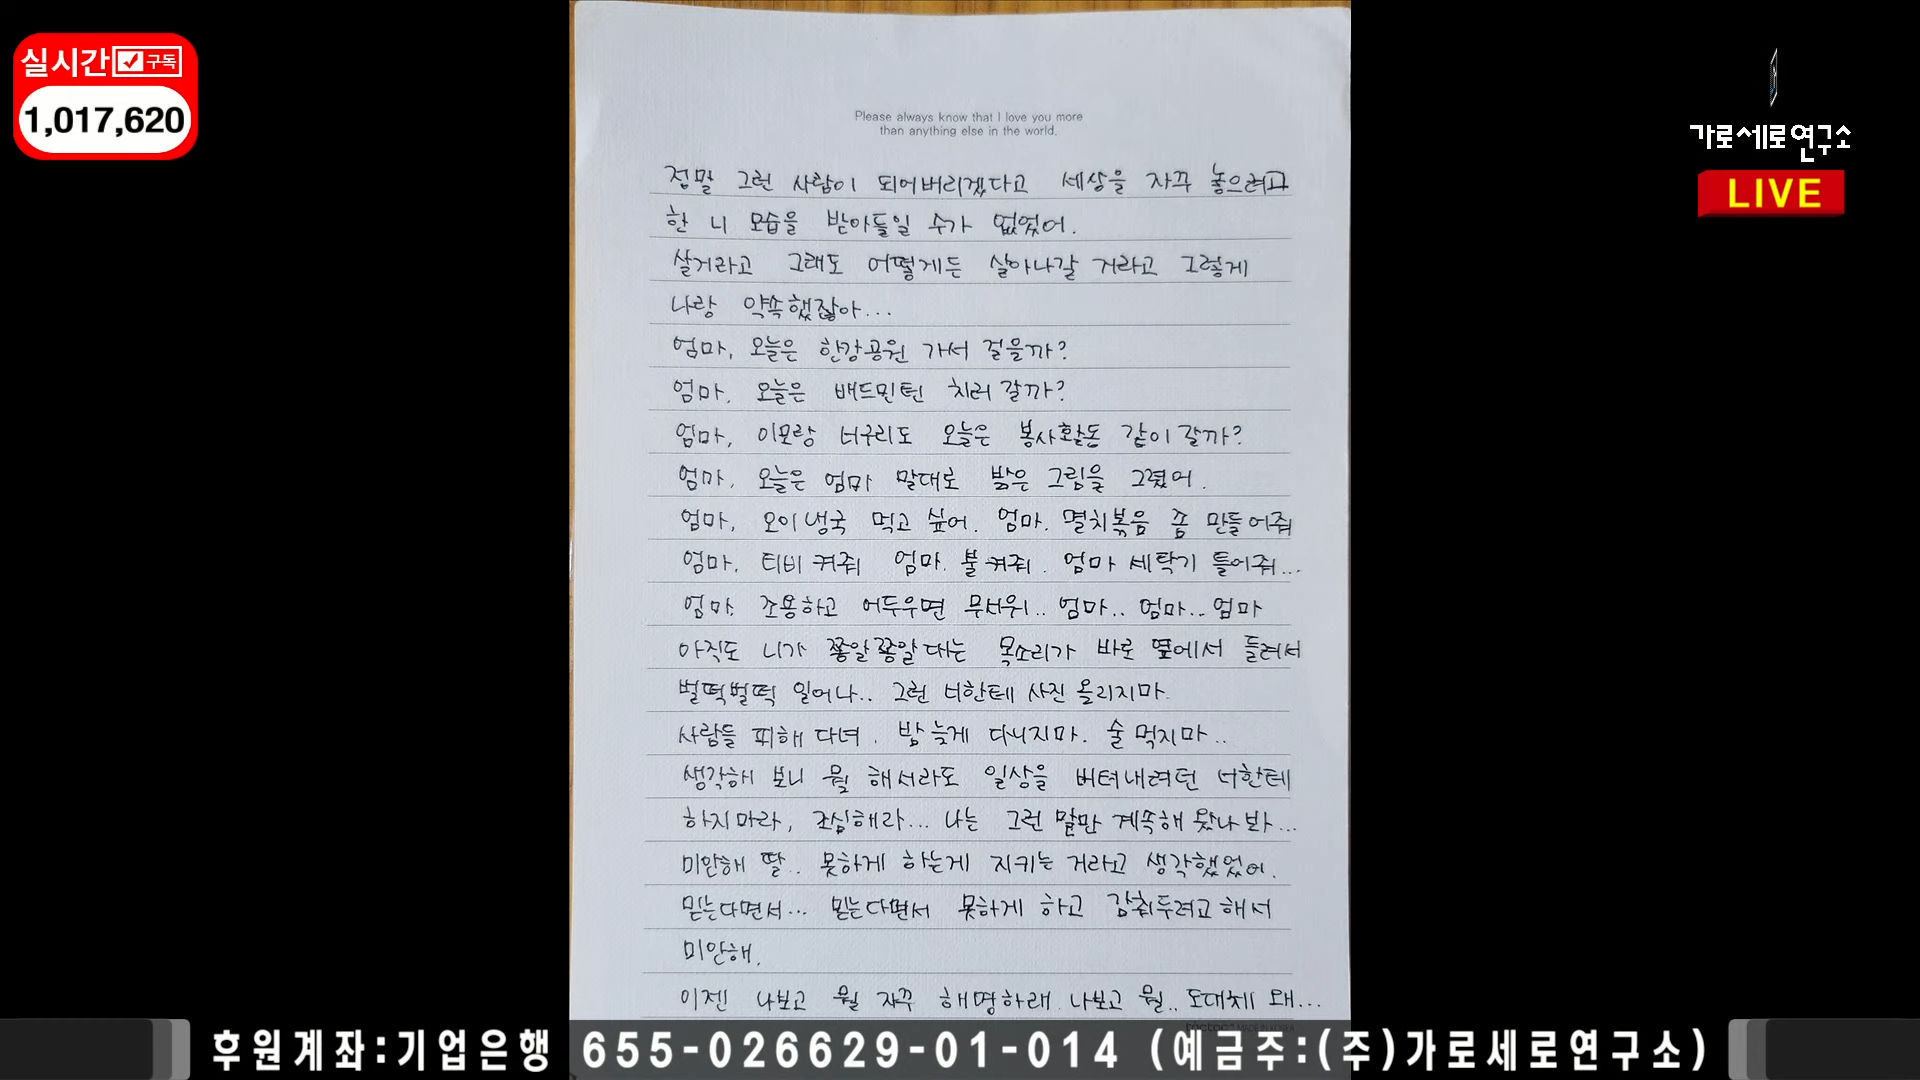 실시간 구독
1,017,620
가로세로연구소
LIVE
Please always know that I love you more
than anything else in the world.
정말 그런 사람이 되어버리겠다고 세상을 자꾸 놓으려고
한 니 모습을 받아들일 수가 없었어.
살거라고 그래도 어떻게든 살아나갈 거라고 그렇게
나랑 약속했잖아...
엄마, 오늘은 한강공원 가서 걸을까?
엄마, 오늘은 배드민턴 치러 갈까?
엄마, 이모랑 너구리도 오늘은 봉사활동 같이 갈까?
엄마, 오늘은 엄마 말대로 밝은 그림을 그렸어.
엄마, 오이냉국 먹고 싶어. 엄마. 멸치볶음 좀 만들어줘
엄마. 티비 켜줘 엄마. 불 켜줘. 엄마 세탁기 틀어줘...
엄마 조용하고 어두우면 무서워.. 엄마.. 엄마.. 엄마
아직도 니가 쫑알쫑알대는 목소리가 바로 옆에서 들려서
벌떡벌떡 일어나.. 그런 너한테 사진 올리지마.
사람들 피해 다녀. 밤 늦게 다니지마. 술 먹지마..
생각해 보니 뭘 해서라도 일상을 버텨내려던 너한테
하지마라, 조심해라... 나는 그런 말만 계속해 왔나 봐...
미안해 딸.. 못하게 하는게 지키는 거라고 생각했었어.
믿는다면서... 믿는다면서 못하게 하고 감춰두려고 해서
미안해.
이젠 나보고 뭘 자꾸 해명하래. 나보고 뭘.. 도대체 왜...
후원계좌:기업은행 655-026629-01-014 (예금주:(주)가로세로연구소)